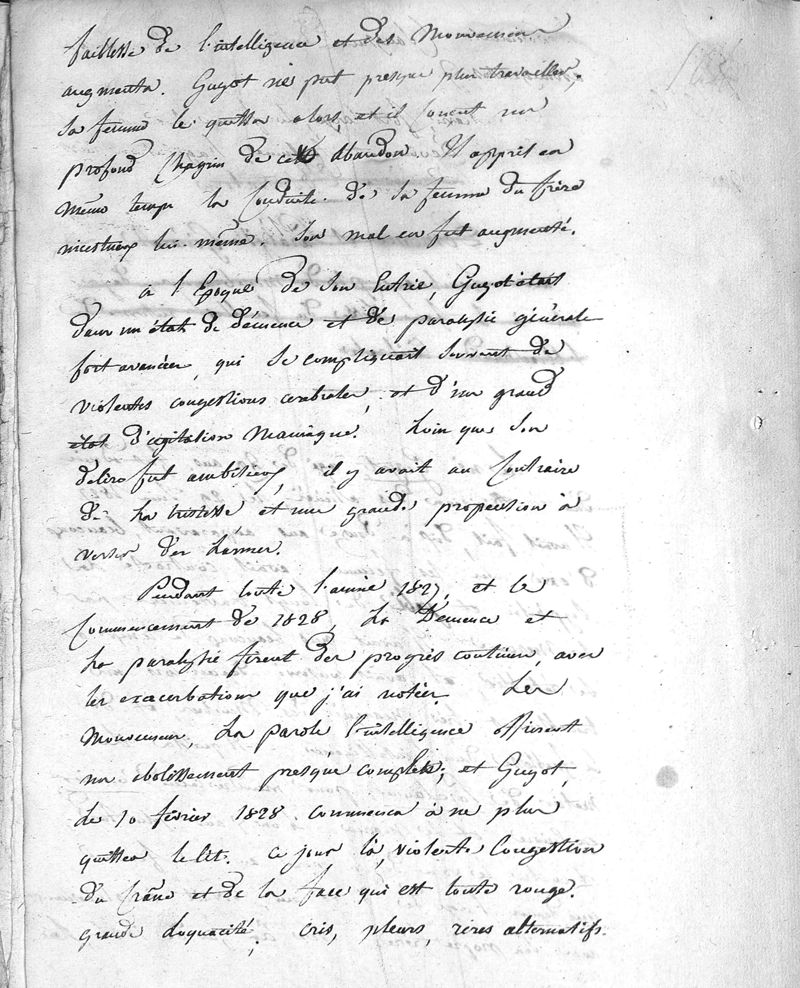 faiblesse de l'intelligence et des Mouvemens
augmenta. Guyot ne put presque plus travailler.
Sa femme le quitta alors, et il sentit un
profond Chagrin de cet abandon. Il apprit en
même temps la Conduite de sa femme du frère
lui-même. Son mal en fut augmenté.
à l'Epoque de son Entrée, Guyot était
dans un état de démence et de paralysie générale
fort avancée, qui se compliquait souvent de
violentes congestions cerebrales, et d'un grand
état d'agitation Maniaque. Loin que son
délire fut ambitieux, il y avait au Contraire
de la tristesse et une grande propention à
verser des larmes.
Pendant toute l'année 1827, et le
Commencement de 1828, la Demence et
la paralysie firent des progrès continus, avec
les exacerbations que j'ai notées. Les
Mouvemens, la parole l'intelligence offrirent
un abolissement presque complet; et Guyot,
le 10 février 1828 commença à ne plus
quitter le lit. Ce jour là, violente Congestion
du Crâne et de la face qui est toute rouge.
grande Loquacité, cris, pleurs, rires alternatifs.